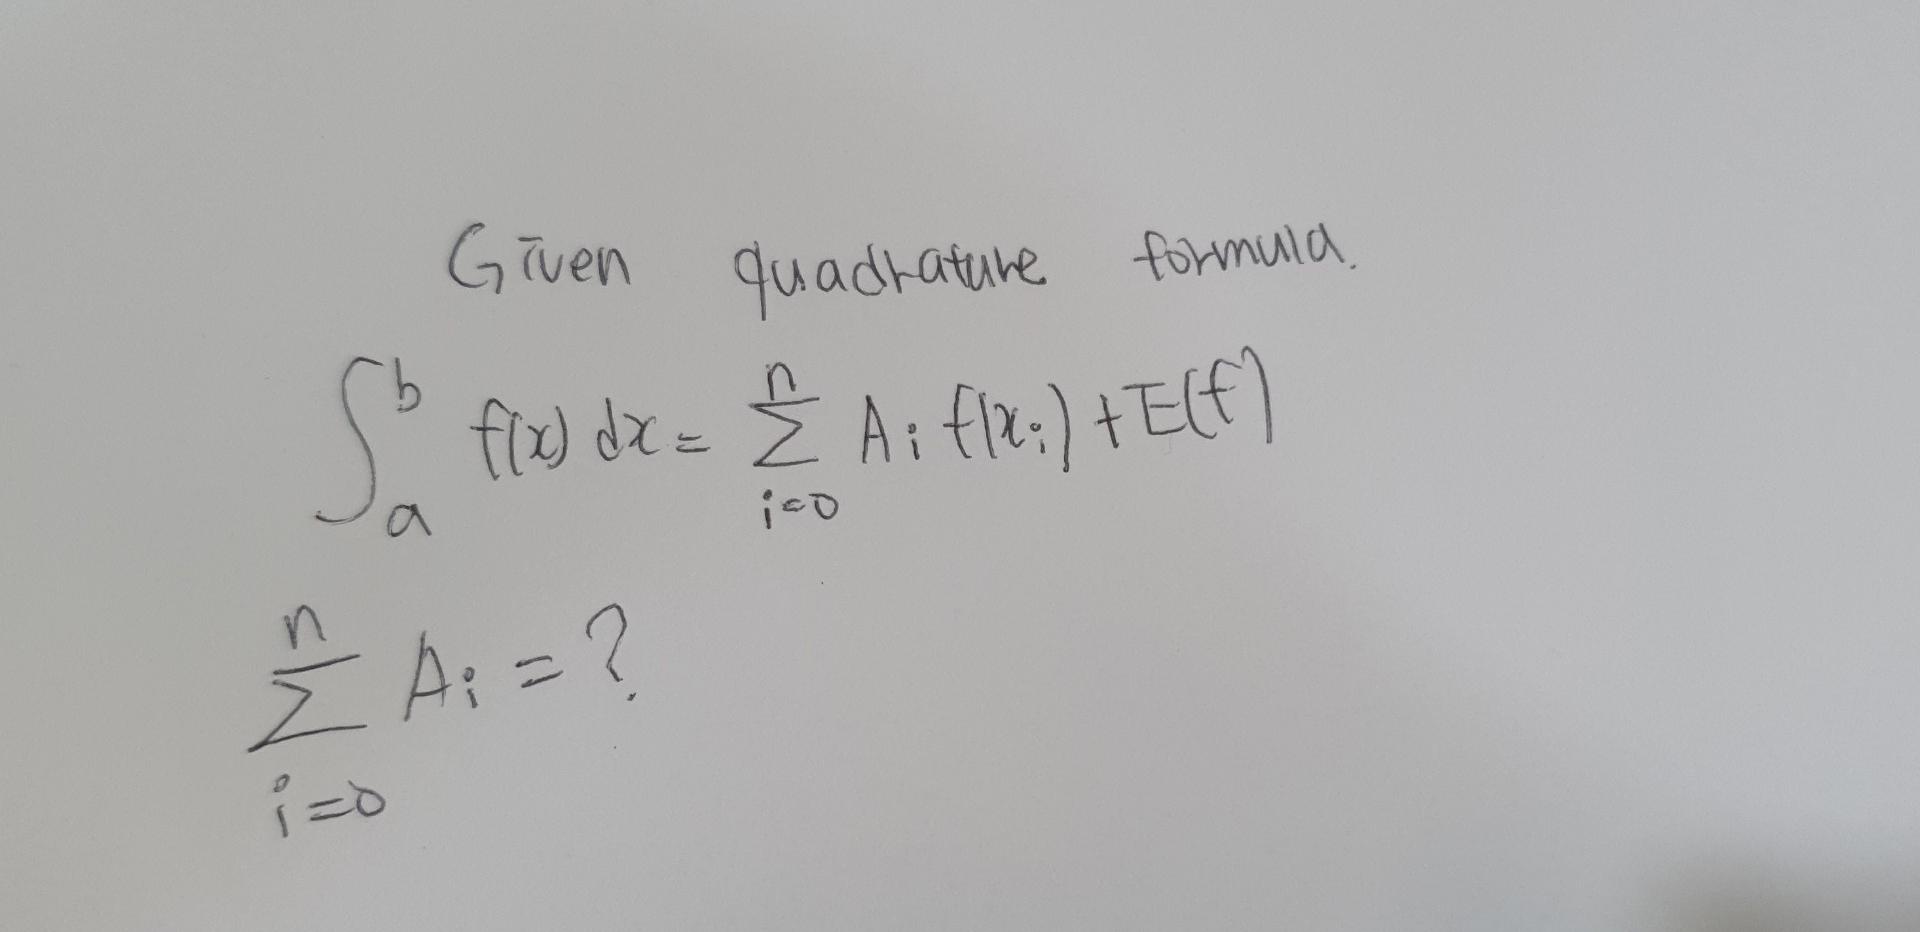 Given quadrature formula.
∫_a^b f(x) dx = ∑_{i=0}^n A_i f(x_i) + E(f)
∑_{i=0}^n A_i = ?